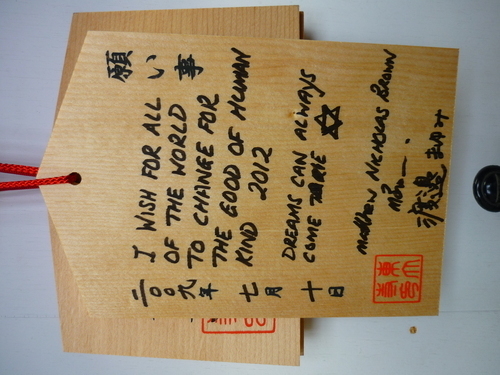 願い事
I WISH FOR ALL
OF THE WORLD
TO CHANGE FOR
THE GOOD OF HUMAN
KIND 2012
DREAMS CAN ALWAYS
COME TRUE ✡
MATTHEW NICHOLAS BROWN
渡邉 まゆみ
二〇〇九年 七月 十日